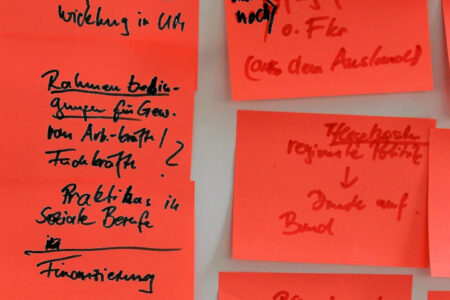 wicklung in
Rahmenbedin-
gungen für Gew.
von Arb.kräfte /
Fachkräfte ?
Praktikas in
Soziale Berufe
in
Finanzierung
noch/
o. Fkr
(aus dem Ausland)
regionale Politik
↓
Druck auf
Bund